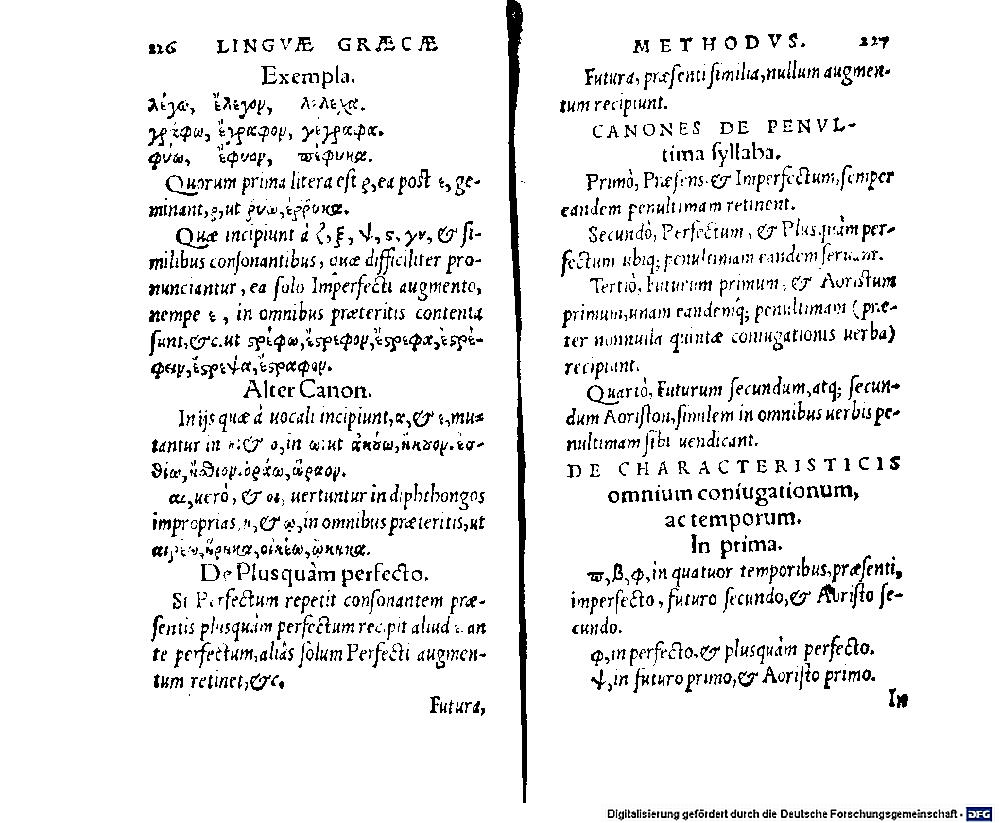 226 LINGVÆ GRÆCÆ
Exempla.
λέγω, ἔλεγον, λέλεχα.
γράφω, ἔγραφον, γέγραφα.
φύω, ἔφυον, πέφυκα.
Quorum prima litera est ρ, ea post ε, ge-
minant, ρ, ut ῥύω, ἔρρυκα.
Quæ incipiunt à ζ, ξ, ψ, ς, γν, & si-
milibus consonantibus, quæ difficiliter pro-
nunciantur, ea solo Imperfecti augmento,
nempe ε, in omnibus præteritis contenta
sunt, &c. ut ςρέφω, ἔςρεφον, ἔςρεφα, ἐςρέ-
φειν, ἔςρεψα, ἔςραφον.
Alter Canon.
In ijs quæ à uocali incipiunt, α, & ε, mu-
tantur in η: & ο, in ω: ut ἀκούω, ἤκουον. ἐσ-
θίω, ἤσθιον. ὁράω, ὥραον.
αι, uerò, & οι, uertuntur in diphthongos
improprias, ῃ, & ῳ, in omnibus præteritis, ut
αἱρέω, ᾕρηκα, οἰκέω, ᾤκηκα.
De Plusquàm perfecto.
Si Perfectum repetit consonantem præ-
sentis plusquàm perfectum recipit aliud ε an
te perfectum, aliâs solum Perfecti augmen-
tum retinet, &c.
Futura,
METHODVS. 227
Futura, præsenti similia, nullum augmen-
tum recipiunt.
CANONES DE PENVL-
tima syllaba.
Primò, Præsens & Imperfectum, semper
eandem penultimam retinent.
Secundò, Perfectum, & Plusquàm per-
fectum ubiq; penultimam eandem seruant.
Tertiò, Futurum primum, & Aoristum
primum, unam eandemq́; penultimam (præ-
ter nonnulla quintæ coniugationis uerba)
recipiunt.
Quartò, Futurum secundum, atq; secun-
dum Aoriston, similem in omnibus uerbis pe-
nultimam sibi uendicant.
DE CHARACTERISTICIS
omnium coniugationum,
ac temporum.
In prima.
π, β, φ, in quatuor temporibus, præsenti,
imperfecto, futuro secundo, & Aoristo se-
cundo.
φ, in perfecto, & plusquàm perfecto.
ψ, in futuro primo, & Aoristo primo.
In
Digitalisierung gefördert durch die Deutsche Forschungsgemeinschaft - DFG